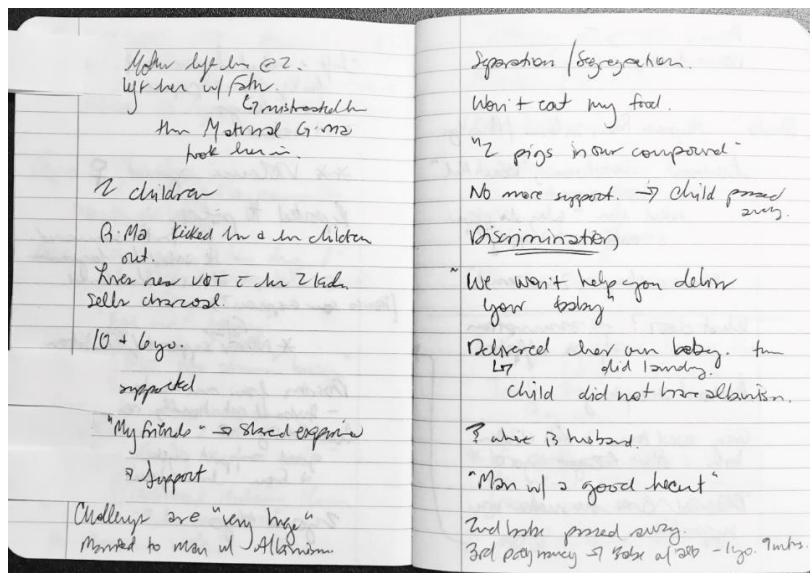 Mother left her @ 2.
left her w/ Fathr.
↳ mistreated her
then Maternal G-ma
took her in.
2 children
G-Ma kicked her & her children
out.
Lives near VOT c̄ her 2 kids
sells charcoal.
10 + 6yo.
supported
"My friends" → shared experience
→ Support
Challenges are "very huge"
Married to man w/ Albinism.
Separation / Segregation.
Won't eat my food.
"2 pigs in our compound"
No more support. → child passed
away.
Discrimination
"We won't help you deliver
your baby"
Delivered her own baby. then
↳ did laundry.
child did not have albinism.
? where is husband.
"Man w/ a good heart"
2nd babe passed away.
3rd pregnancy → babe w/ alb - 1yo. 9mths.